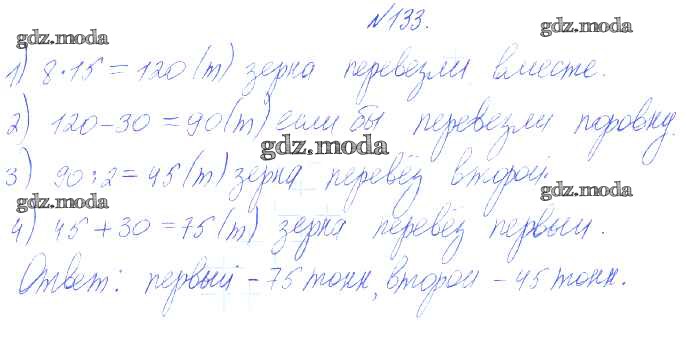 №133.
gdz.moda gdz.moda
1) 8·15=120(т) зерна перевезли вместе.
2) 120-30=90(т) если бы перевезли поровну.
gdz.moda
3) 90:2=45(т) зерна перевёз второй.
gdz.moda gdz.moda
4) 45+30=75(т) зерна перевёз первый.
Ответ: первый - 75 тонн, второй - 45 тонн.